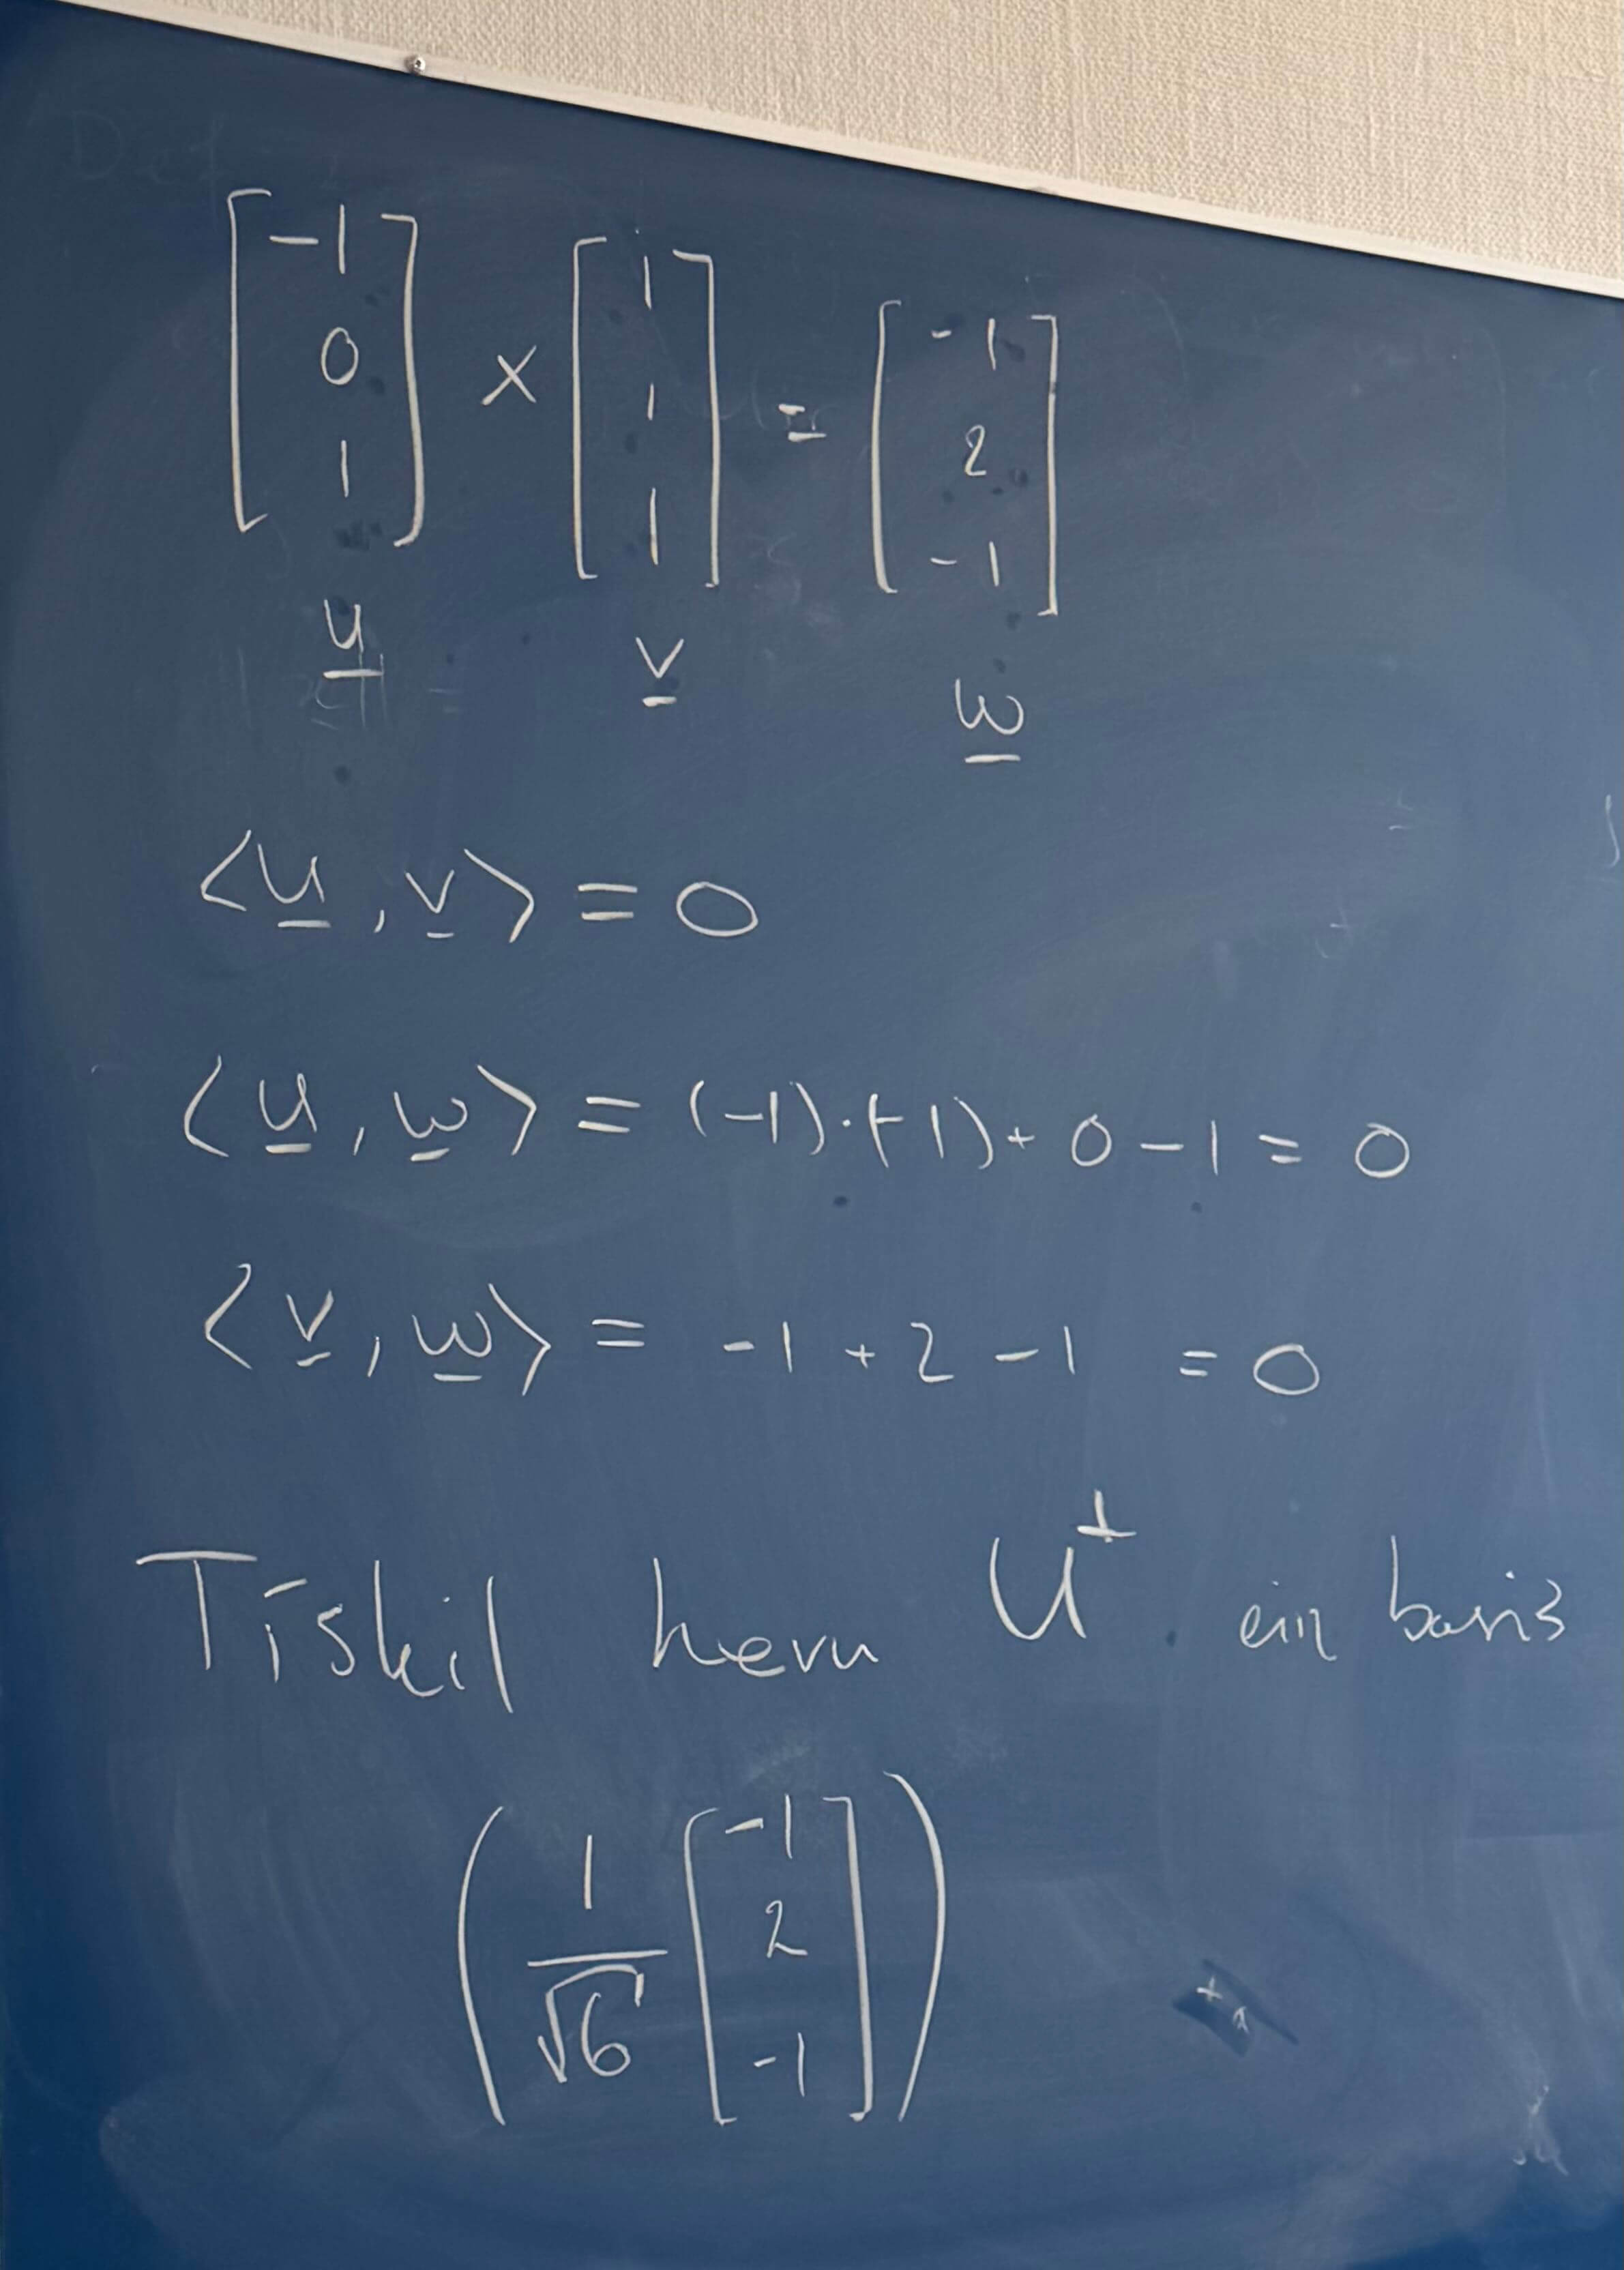 [-1 0 1] × [1 1 1] = [-1 2 -1]
u v w
<u, v> = 0
<u, w> = (-1)·(-1) + 0 - 1 = 0
<v, w> = -1 + 2 - 1 = 0
Tískil hevu U⊥ ein basis
(1/√6 [-1 2 -1])